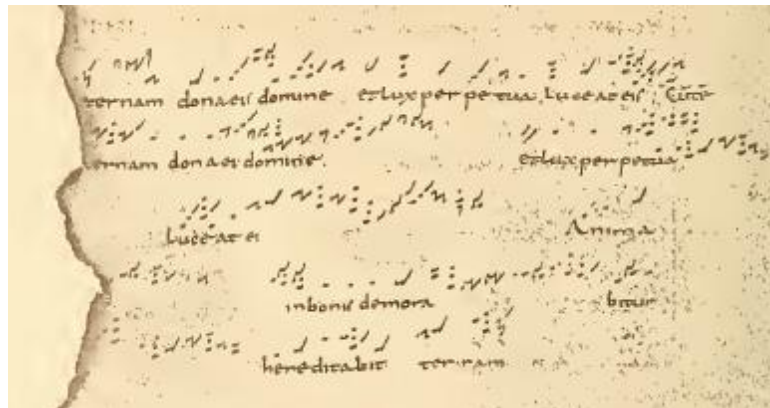 ternam dona eis domine et lux per petua Luceat eis
ernam dona ei domine et lux per petua
Luceat ei Anima
in bonis demora bitur
hereditabit ter ram